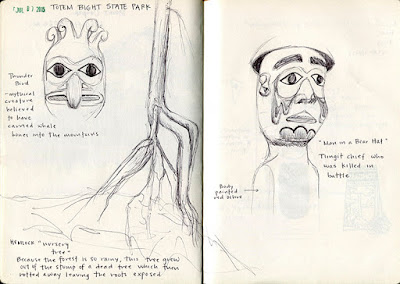 JUL 2015
TOTEM BIGHT STATE PARK
Thunder
Bird
-mythical
creature
believed
to have
carried whale
bones into the mountains
HEMLOCK "nursery
tree"
Because the forest is so rainy, this tree grew
out of the stump of a dead tree which then
rotted away leaving the roots exposed
"Man in a Bear Hat"
Tlingit chief who
was killed in
battle
Body
painted
red above